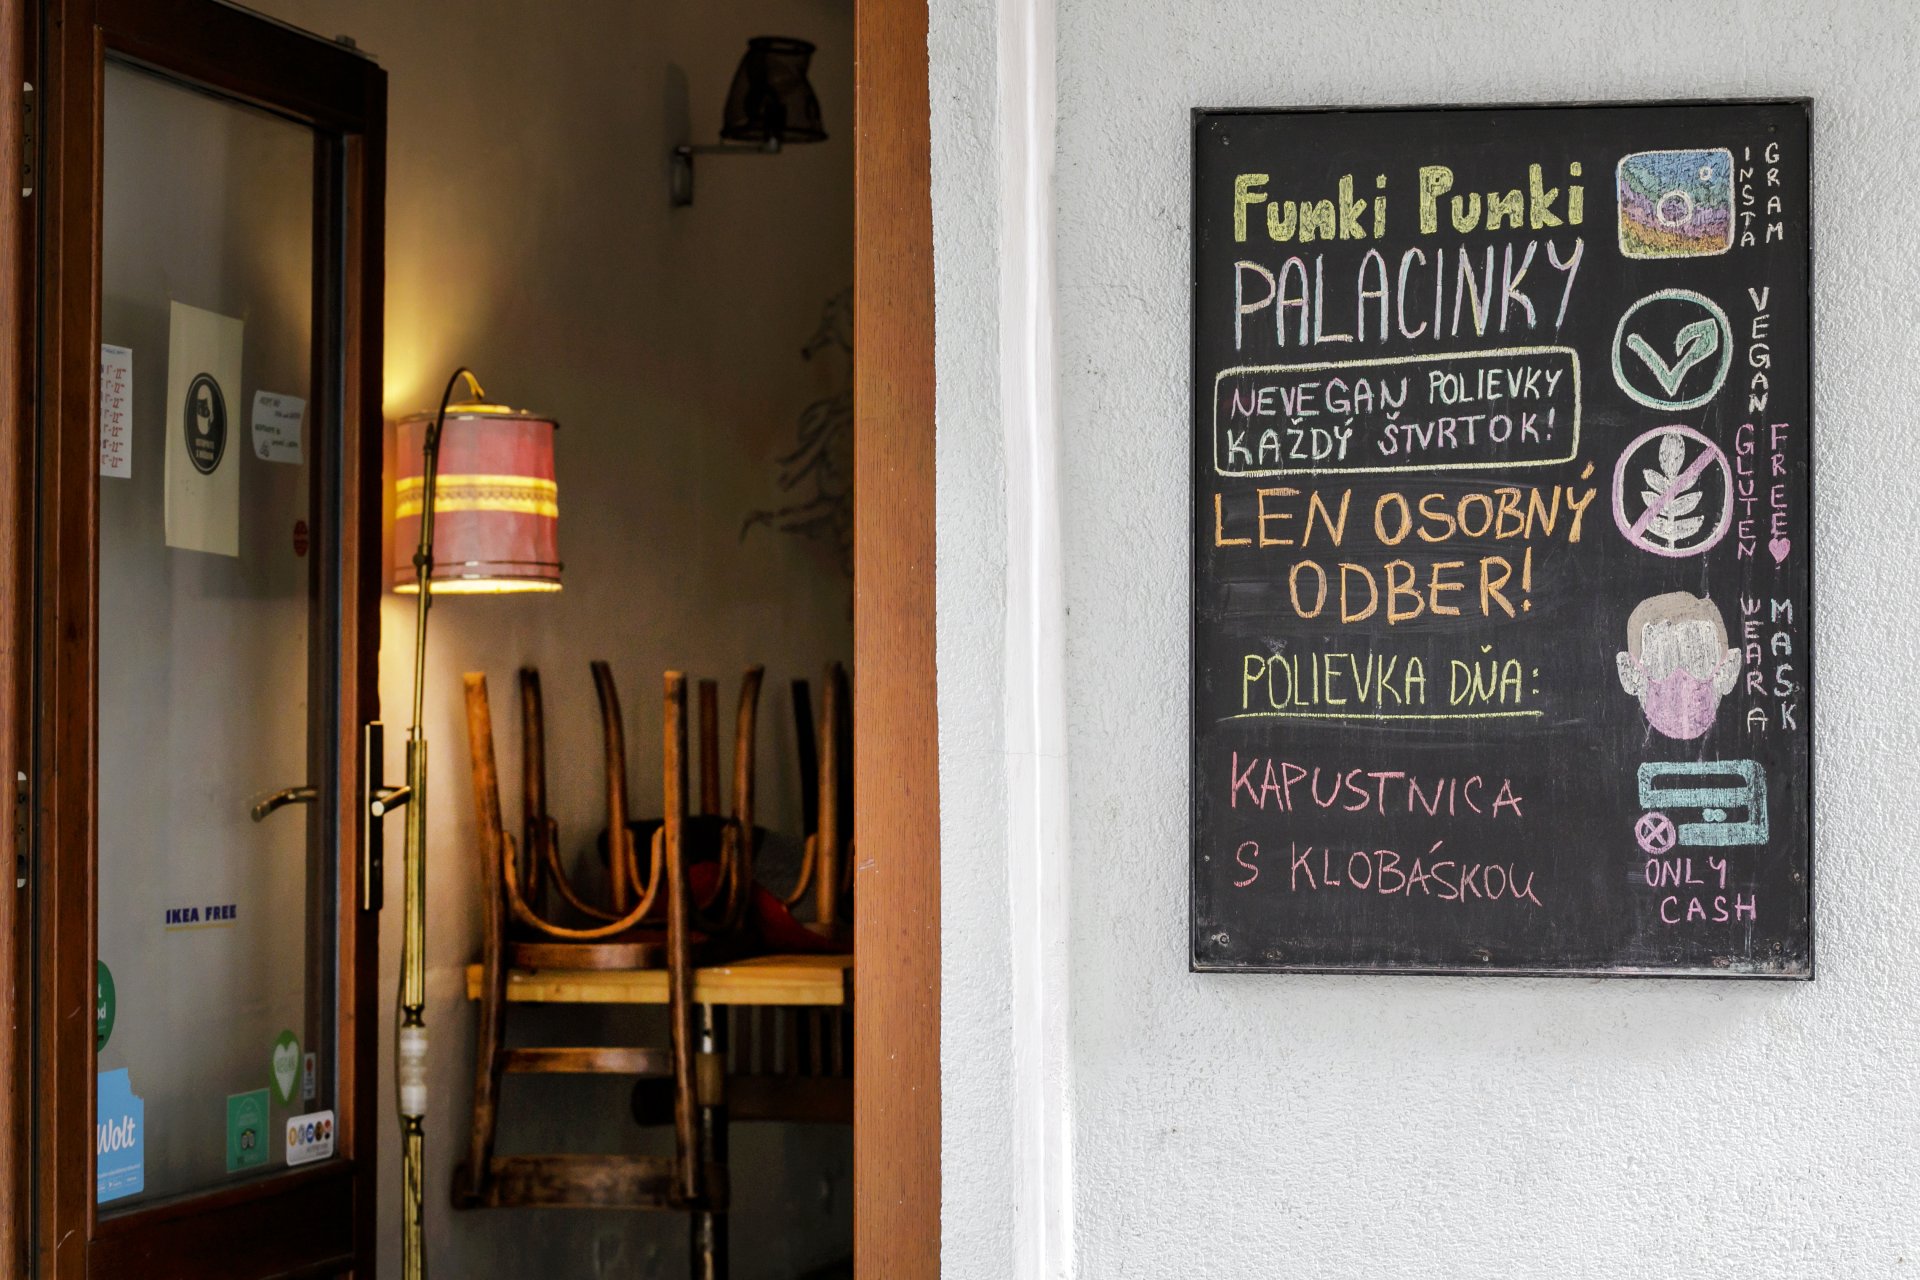 Funki Punki
PALACINKY
NEVEGAN POLIEVKY
KAŽDÝ ŠTVRTOK!
LEN OSOBNÝ
ODBER!
POLIEVKA DŇA:
KAPUSTNICA
S KLOBÁSKOU
INSTA
GRAM
VEGAN
GLUTEN
FREE
WEAR A
MASK
ONLY
CASH
IKEA FREE
Wolt